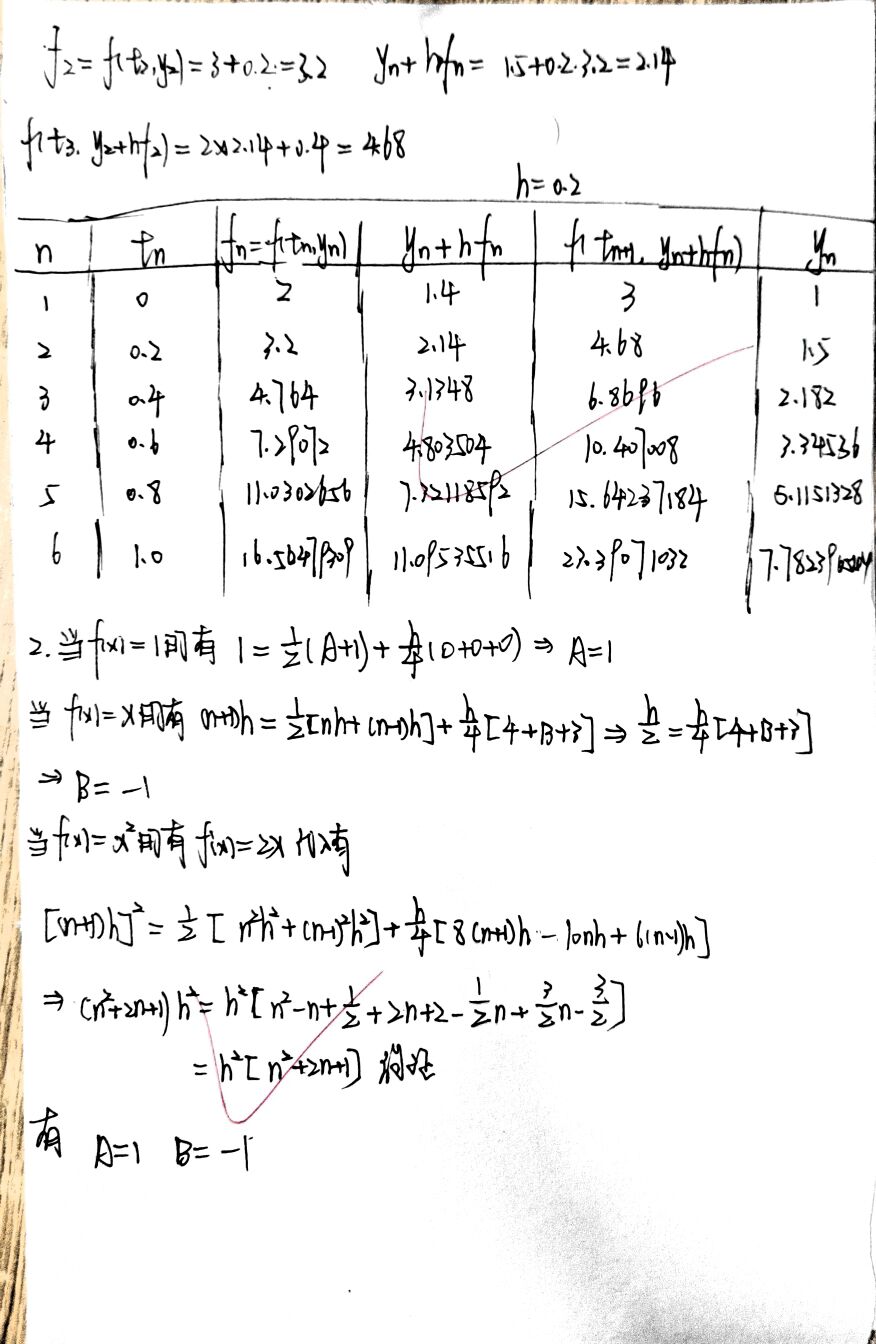 f₂=f(t₂,y₂)=3+0.2=3.2 yn+hfn= 1.5+0.2·3.2=2.14
f(t₃, y₂+hf₂)=2×2.14+0.4=4.68
h=0.2
n tn fn=f(tn,yn) yn+hfn f(tn+1, yn+hfn) yn
1 0 2 1.4 3 1
2 0.2 3.2 2.14 4.68 1.5
3 0.4 4.764 3.1348 6.8696 2.182
4 0.6 7.29072 4.803504 10.407008 3.34536
5 0.8 11.0302656 7.32118592 15.64237184 5.1151328
6 1.0 16.56479309 11.09535516 23.39071032
2.当f(x)=1时有 1=½(A+1)+h/4(0+0+0) ⇒ A=1
当 f(x)=x时有 (n+1)h=½[nh+(n-1)h]+h/4[4+B+3] ⇒ h/2=h/4[4+B+3]
⇒ B=-1
当f(x)=x²时有 f(x)=2x 代入有
[(n+1)h]²=½[n²h²+(n-1)²h²]+h/4[8(n+1)h-10nh+6(n-1)h]
⇒ (n²+2n+1)h²=h²[n²-n+½+2n+2-½n+3/2n-3/2]
=h²[n²+2n+1]
有 A=1 B=-1